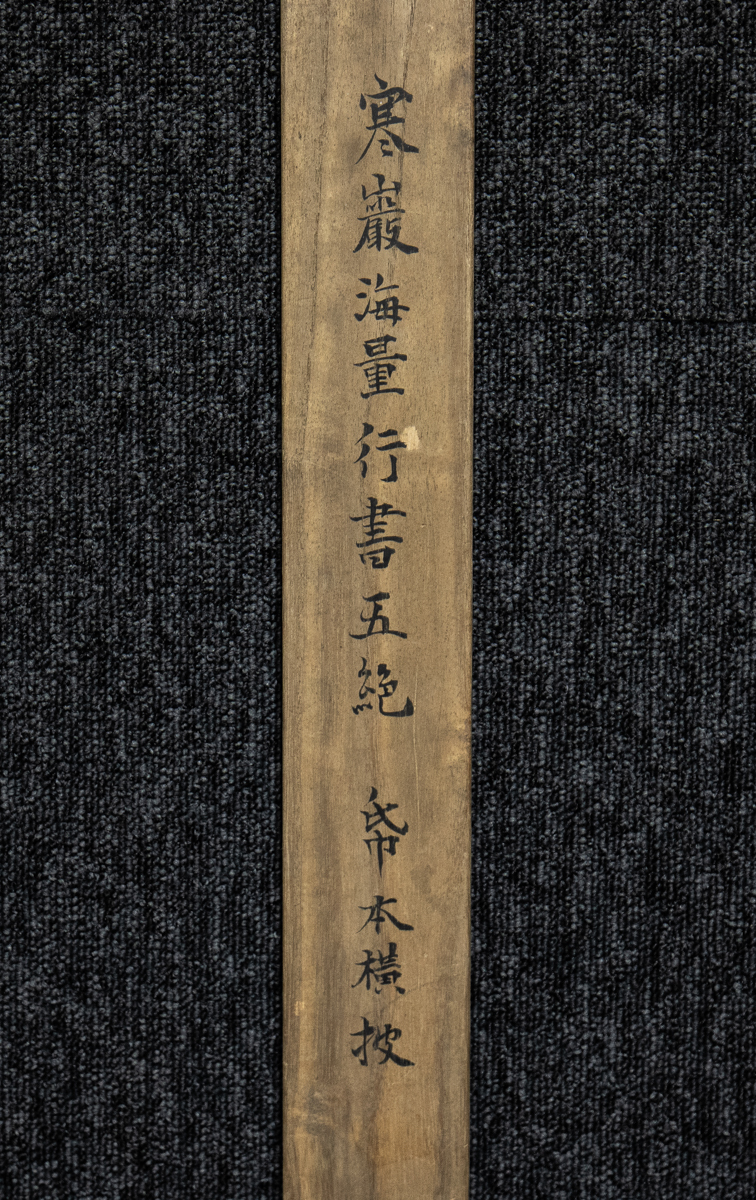 寒巖海量行書五絶 帋本橫披